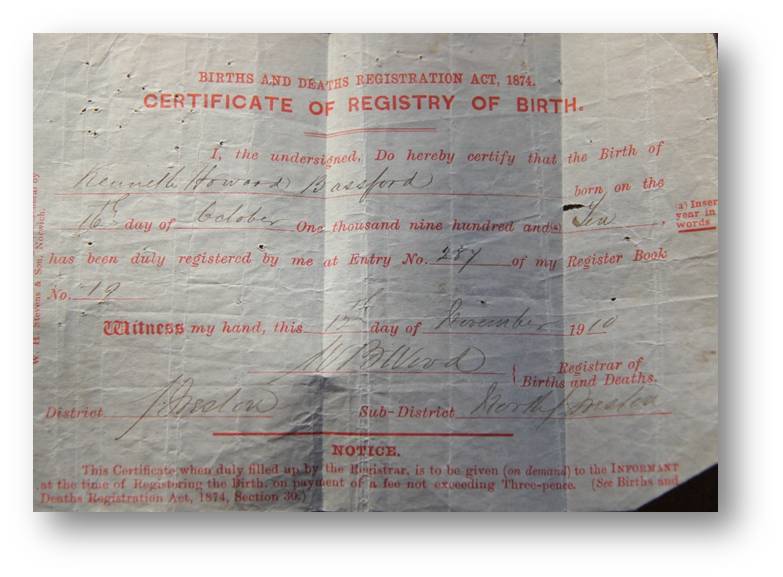 BIRTHS AND DEATHS REGISTRATION ACT, 1874.
CERTIFICATE OF REGISTRY OF BIRTH.
I, the undersigned, Do hereby certify that the Birth of
Kenneth Howard Bassford born on the
16th day of October One thousand nine hundred and (a) Ten,
(a) Inser
year in
words
has been duly registered by me at Entry No. 287 of my Register Book
No. 19
Witness my hand, this day of 1910
Wood Registrar of
Births and Deaths.
District Preston Sub-District North Preston
NOTICE.
This Certificate, when duly filled up by the Registrar, is to be given (on demand) to the INFORMANT
at the time of Registering the Birth, on payment of a fee not exceeding Three-pence. (See Births and
Deaths Registration Act, 1874, Section 30.)
W. H. Stevens & Son, Norwich.